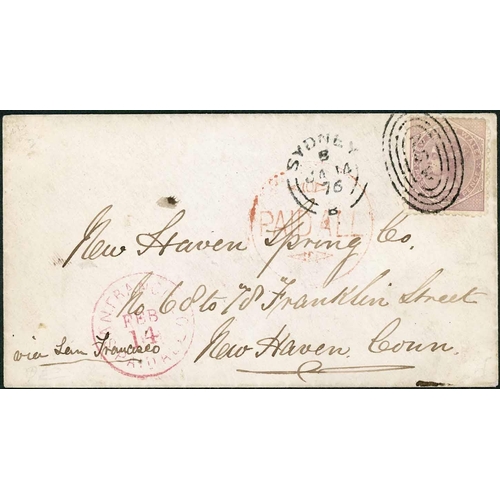 SYDNEY
B
JA 14
76
B
PAID ALL
New Haven Spring Co.
No 68 to 78 Franklin Street
New Haven, Conn.
via San Francisco
FEB
14